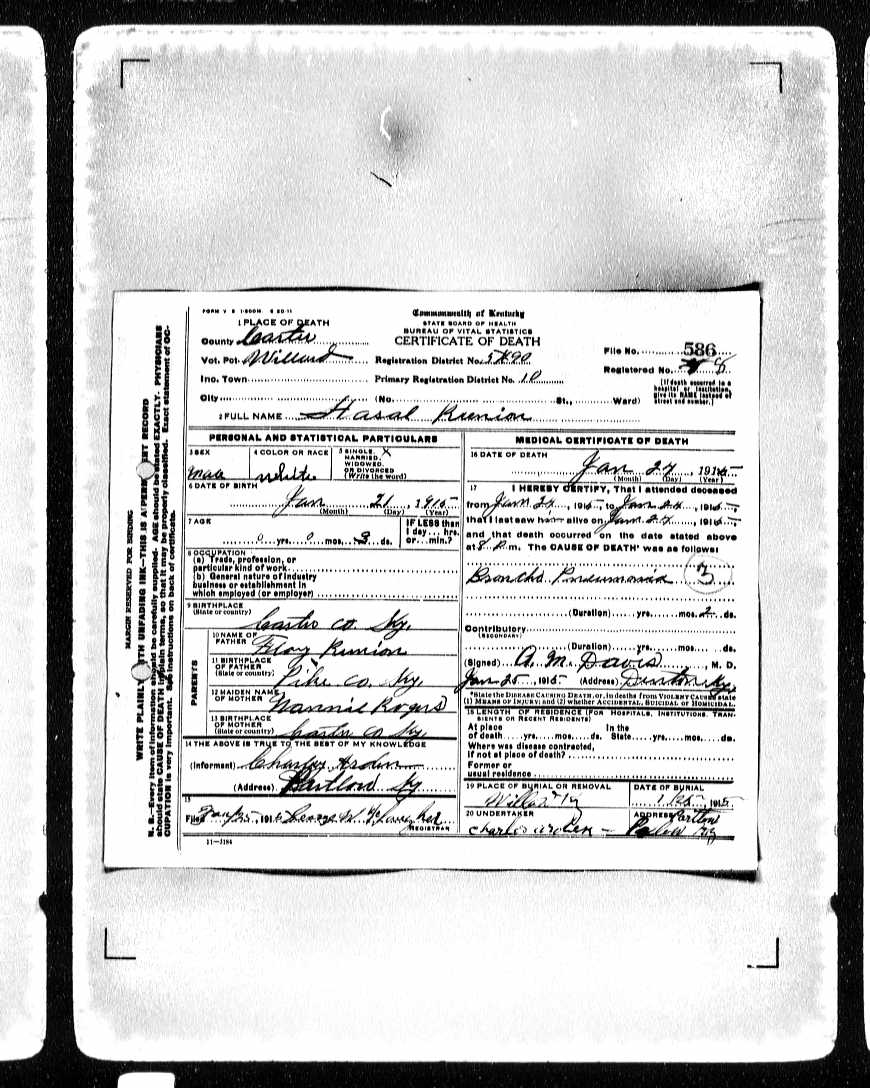 FORM V S 1-500M 6 20-11
Commonwealth of Kentucky
STATE BOARD OF HEALTH
BUREAU OF VITAL STATISTICS
CERTIFICATE OF DEATH
1 PLACE OF DEATH
County Carter
Vot. Pct. Willard Registration District No.
File No. 586
Ino. Town Primary Registration District No. 10
Registered No. 8
City (No. St., Ward)
[If death occurred in a hospital or institution, give its NAME instead of street and number.]
2 FULL NAME Hasal Runion
PERSONAL AND STATISTICAL PARTICULARS
3 SEX
male
4 COLOR OR RACE
white
5 SINGLE, X
MARRIED,
WIDOWED,
OR DIVORCED
(Write the word)
6 DATE OF BIRTH
Jan 21, 1915
(Month) (Day) (Year)
7 AGE
0 yrs. 0 mos. 3 ds.
IF LESS than
1 day... hrs.
or... min.?
8 OCCUPATION
(a) Trade, profession, or
particular kind of work
(b) General nature of industry
business or establishment in
which employed (or employer)
9 BIRTHPLACE
(State or country)
Carter Co. Ky.
PARENTS
10 NAME OF
FATHER
Floy Runion
11 BIRTHPLACE
OF FATHER
(State or country)
Pike Co. Ky.
12 MAIDEN NAME
OF MOTHER
Nannie Rogers
13 BIRTHPLACE
OF MOTHER
(State or country)
Carter Co Ky.
14 THE ABOVE IS TRUE TO THE BEST OF MY KNOWLEDGE
(Informant) Charley Arden
(Address) Ky
15
Filed 1915
REGISTRAR
11-3184
MEDICAL CERTIFICATE OF DEATH
16 DATE OF DEATH
Jan 24, 1915
(Month) (Day) (Year)
17 I HEREBY CERTIFY, That I attended deceased
from Jan 24, 1915, to Jan 24, 1915,
that I last saw him alive on Jan 24, 1915,
and that death occurred on the date stated above
at 8 P.m. The CAUSE OF DEATH* was as follows:
Broncho Pneumonia 3
(Duration) yrs. mos. 2 ds.
Contributory
(SECONDARY)
(Duration) yrs. mos. ds.
(Signed) A. M. Davis, M. D.
Jan 25, 1915 (Address) Denton Ky.
*State the DISEASE CAUSING DEATH, or, in deaths from VIOLENT CAUSES state
(1) MEANS OF INJURY; and (2) whether ACCIDENTAL, SUICIDAL or HOMICIDAL.
18 LENGTH OF RESIDENCE (FOR HOSPITALS, INSTITUTIONS, TRAN-
SIENTS OR RECENT RESIDENTS)
At place In the
of death yrs. mos. ds. State yrs. mos. ds.
Where was disease contracted,
if not at place of death?
Former or
usual residence
19 PLACE OF BURIAL OR REMOVAL
Willard Ky
DATE OF BURIAL
1915
20 UNDERTAKER
Charles Arden
ADDRESS
Ky
MARGIN RESERVED FOR BINDING
WRITE PLAINLY WITH UNFADING INK—THIS IS A PERMANENT RECORD
N. B.—Every item of information should be carefully supplied. AGE should be stated EXACTLY. PHYSICIANS
should state CAUSE OF DEATH in plain terms, so that it may be properly classified. Exact statement of OC-
CUPATION is very important. See instructions on back of certificate.